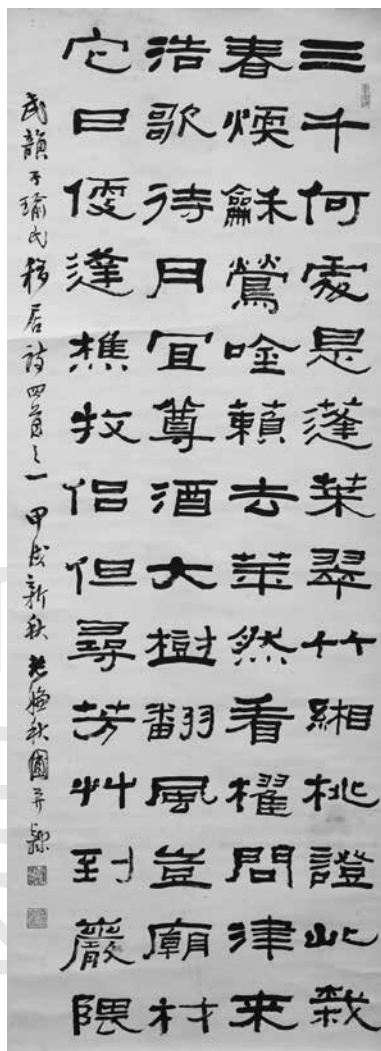 三千何處是蓬萊翠竹緗桃證此栽
春煗龢鶯唫藾去苶然看櫂問津来
浩歌待月宜尊酒大樹翻風豈廟材
它日便逢樵牧侣但尋芳艸到巖隈
武韻子瑜氏移居詩四首之一甲戌新秋秋圃并